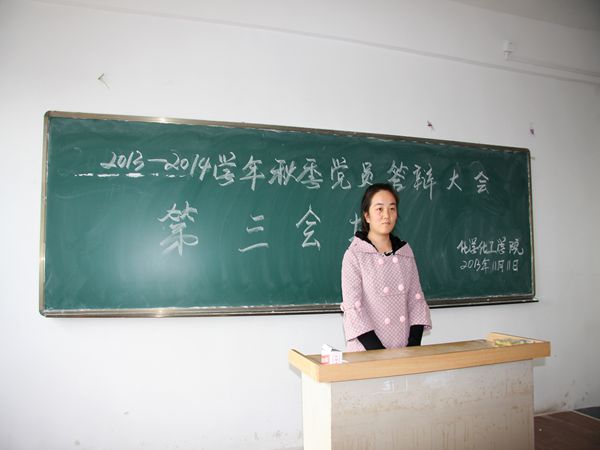 2013-2014学年秋季党员答辩大会
第三会
化学化工学院
2013年11月11日